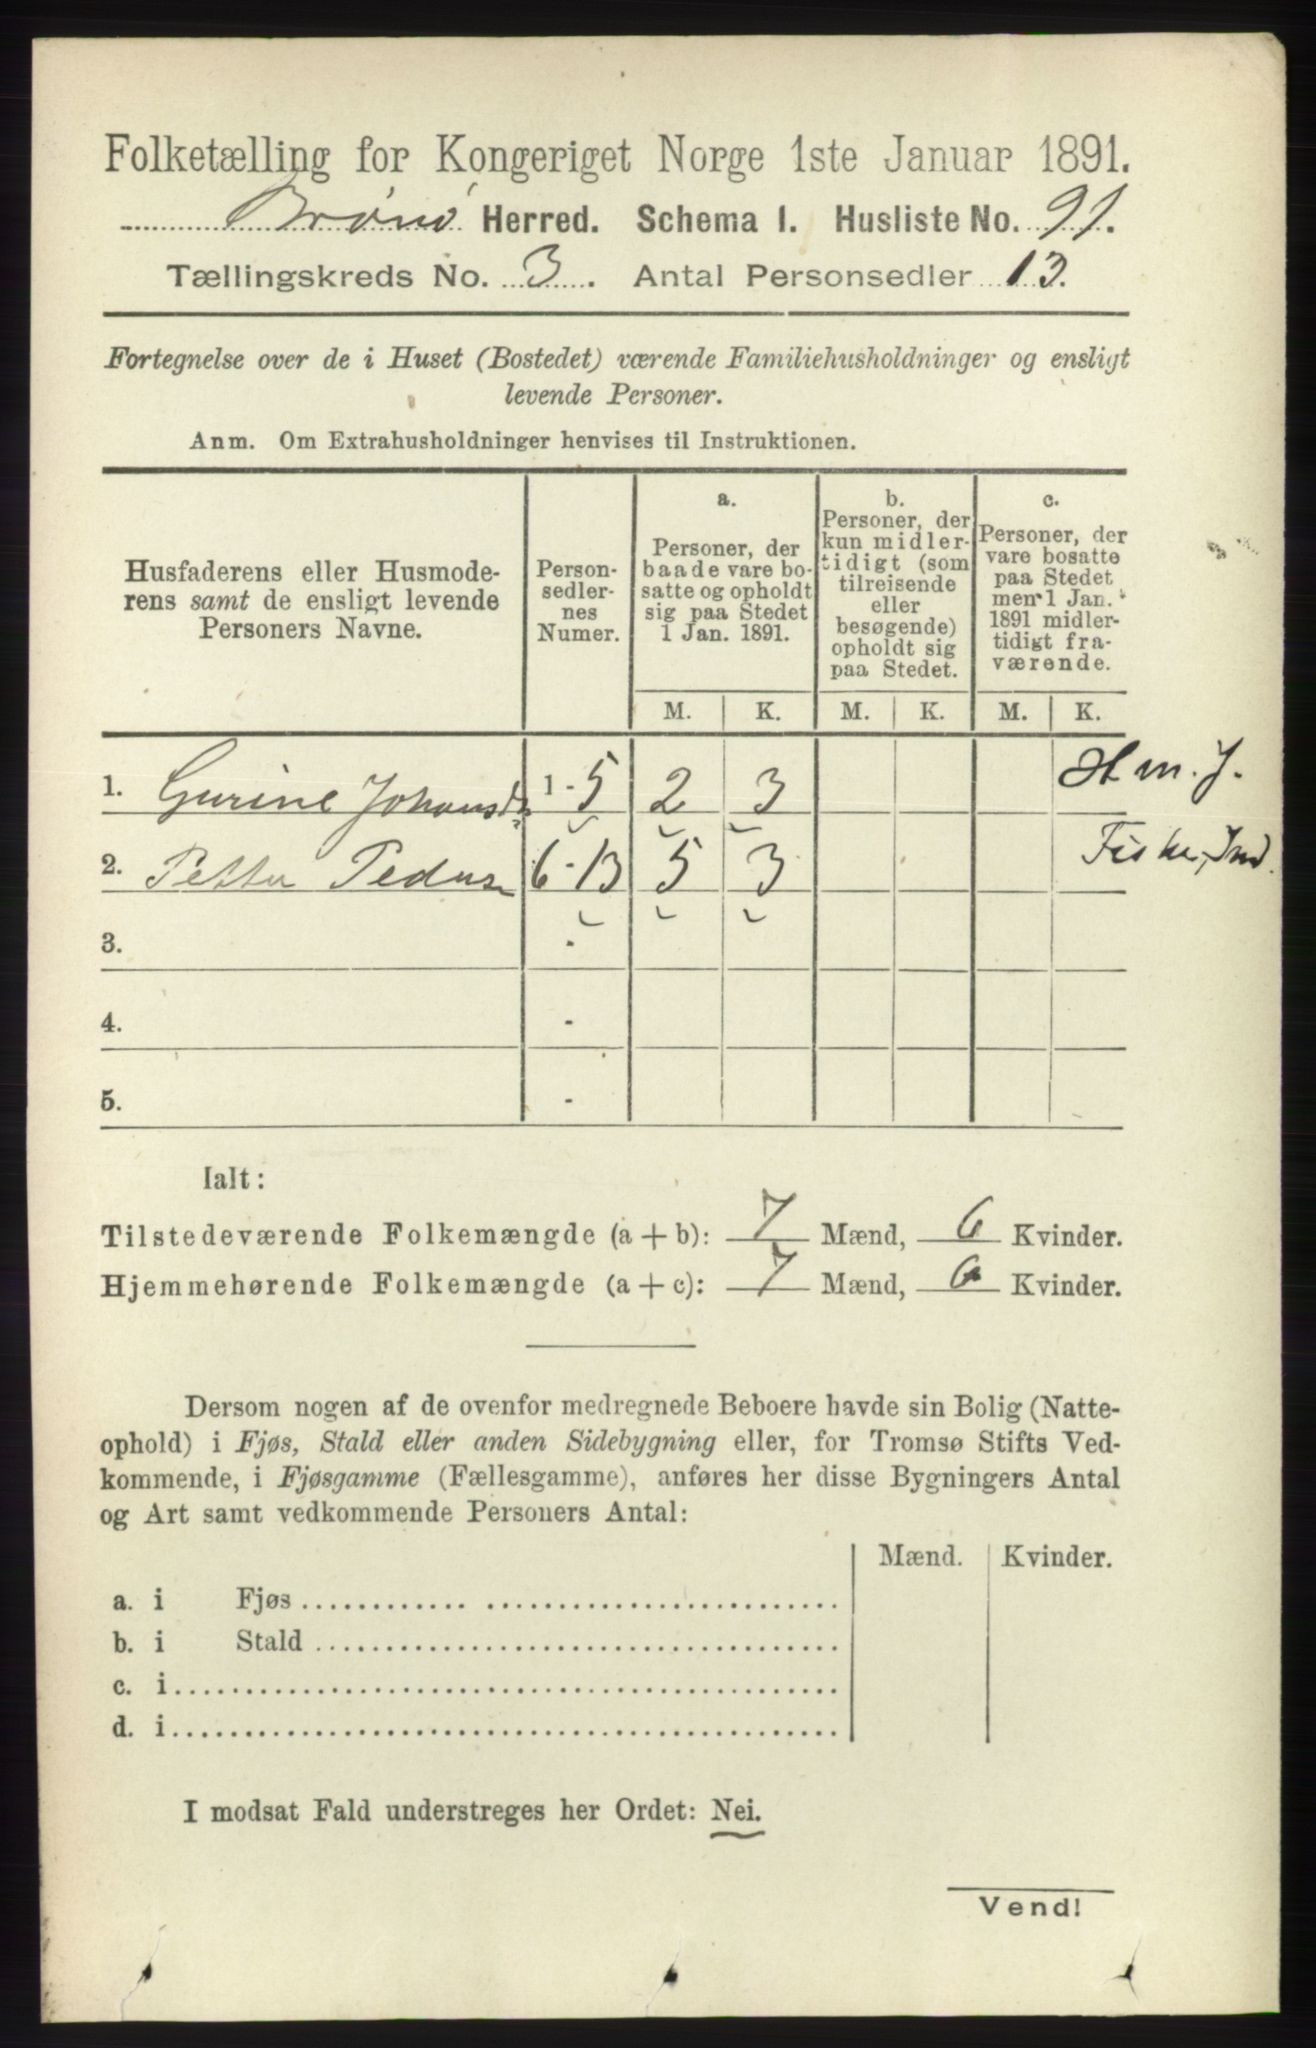 Folketælling for Kongeriget Norge 1ste Januar 1891.
Brønø Herred. Schema 1. Husliste No. 91.
Tællingskreds No. 3. Antal Personsedler 13.
Fortegnelse over de i Huset (Bostedet) værende Familiehusholdninger og ensligt
levende Personer.
Anm. Om Extrahusholdninger henvises til Instruktionen.
Husfaderens eller Husmode-
rens samt de ensligt levende
Personers Navne.
Person-
sedler-
nes
Numer.
a.
Personer, der
baade vare bo-
satte og opholdt
sig paa Stedet
1 Jan. 1891.
b.
Personer, der
kun midler-
tidigt (som
tilreisende
eller
besøgende)
opholdt sig
paa Stedet.
c.
Personer, der
vare bosatte
paa Stedet
men 1 Jan.
1891 midler-
tidigt fra-
værende.
M. K. M. K. M. K.
1. Gurine Johansd. 1 - 5 2 3 Hm. J.
2. Petter Peders 6 - 13 5 3 Fisker, Ind.
3. -
4. -
5. -
Ialt:
Tilstedeværende Folkemængde (a + b): 7 Mænd, 6 Kvinder.
Hjemmehørende Folkemængde (a + c): 7 Mænd, 6 Kvinder.
Dersom nogen af de ovenfor medregnede Beboere havde sin Bolig (Natte-
ophold) i Fjøs, Stald eller anden Sidebygning eller, for Tromsø Stifts Ved-
kommende, i Fjøsgamme (Fællesgamme), anføres her disse Bygningers Antal
og Art samt vedkommende Personers Antal:
Mænd. Kvinder.
a. i Fjøs
b. i Stald
c. i
d. i
I modsat Fald understreges her Ordet: Nei.
Vend!